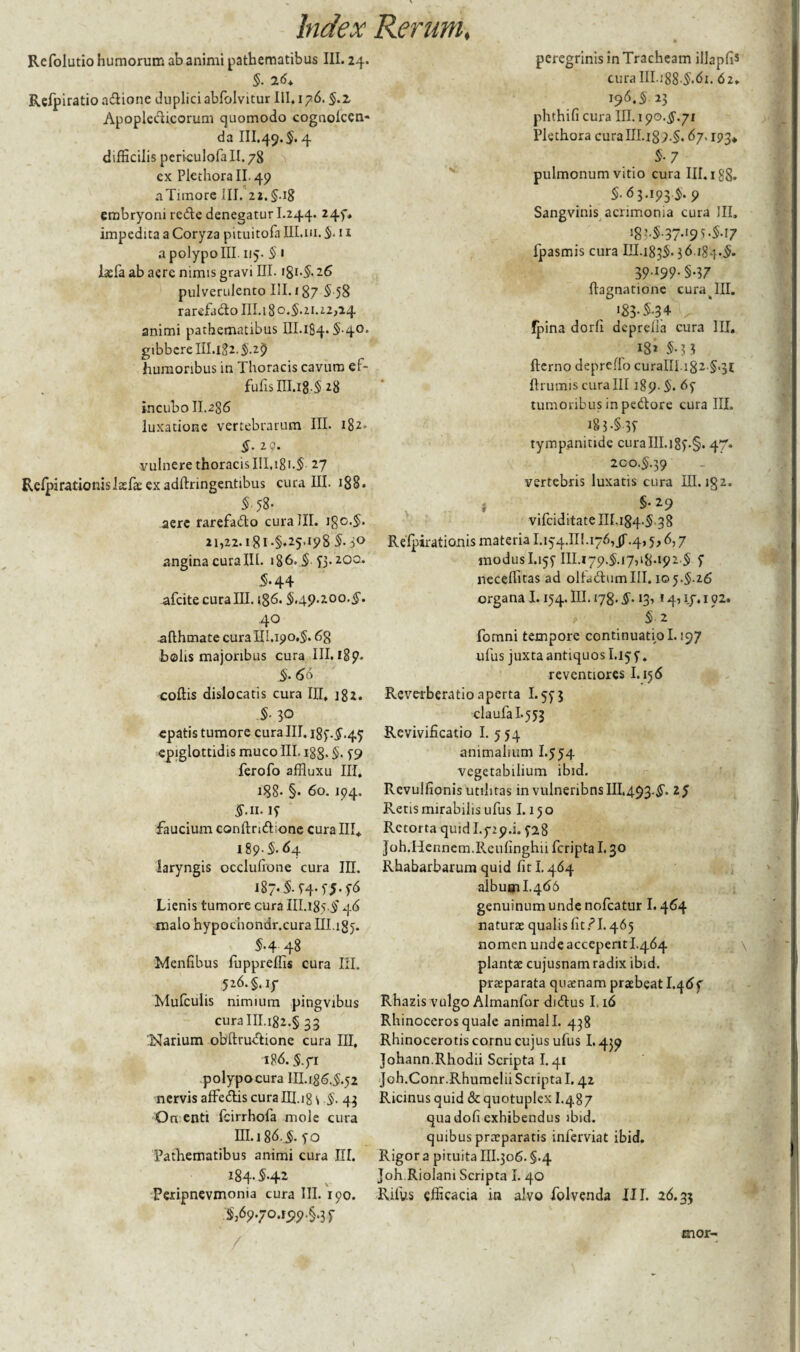 Index Rerum.
Resolutio humorum ab animi pathematibus III. 24.
§. 26.
Respiratio actione duplici absolvitur III. 176. §. 2
Apoplecticorum quomodo cognoscen-
da III. 49. §. 4
difficilis periculosa II. 78
ex Plethora II. 49
a Timore III. 22. §. 18
embryoni recte denegatur I. 244. 245.
impedita a Coryza pituitosa III. 111. §. 11
a polypo III. 115. § 1
læsa ab aere nimis gravi III. 181. §. 26
pulverulento III. 187 § 58
rarefacto III. 180. §. 21. 22, 24
animi pathematibus III. 184. §. 40.
gibbere III. 182. §. 29
humoribus in Thoracis cavum ef-
fusis III. 18. § 28
incubo II. 286
luxatione vertebrarum III. 182.
§. 29.
vulnere thoracis III. 181. § 27
Respirationis læsæ ex adstringentibus cura III. 188.
§ 58.
aere rarefacto cura III. 180. §.
21, 22. 181. §. 25. 198 §. 30
angina cura III. 186. §. 53. 200.
§. 44
ascite cura III. 186. §. 49. 200. §.
40
asthmate cura III. 190. §. 68
bolis majoribus cura III. 189.
§. 66
costis dislocatis cura III. 182.
§. 30
epatis tumore cura III. 185. §. 45
epiglottidis muco III. 188. §. 59
seroso affluxu III.
188. §. 60. 194.
§. 11. 15
faucium constrictione cura III.
189. §. 64
laryngis occlusione cura III.
187. §. 54. 55. 56
Lienis tumore cura III. 185 § 46
malo hypochondr. cura III. 185.
§. 4 48
Mensibus suppressis cura III.
526. §. 15
Musculis nimium pingvibus
cura III. 182. § 33
Narium obstructione cura III.
186. §. 51
polypo cura III. 186. §. 52
nervis affectis cura III. 18 §. 43
Omenti scirrhosa mole cura
III. 186. §. 50
Pathematibus animi cura III.
184. §. 42
Peripnevmonia cura III. 190.
§, 69. 70. 199. §. 35
peregrinis in Tracheam illapsis
cura III. 188. §. 61. 62.
196. § 23
phthisi cura III. 190. §. 71
Plethora cura III. 189. §. 67. 193.
§. 7
pulmonum vitio cura III. 188.
§. 63. 193 §. 9
Sangvinis acrimonia cura III.
183. §. 37. 195. §. 17
spasmis cura III. 183 §. 36. 184. §.
39. 199. §. 37
stagnatione cura III.
183. §. 34
spina dorsi depressa cura III.
182 §. 33
sterno depresso cura III. 182. §. 31
strumis cura III 189. §. 65
tumoribus in pectore cura III.
183. § 35
tympanitide cura III. 185. §. 47.
200. §. 39
vertebris luxatis cura III. 182.
§. 29
visciditate III. 184. § 38
Respirationis materia I. 154. III. 176, §. 4, 5, 6, 7
modus I. 155 III. 179. §. 17, 18. 192 § 5
necessitas ad olfactum III. 105. §. 26
organa I. 154. III. 178. §. 13, 14, 15. 192.
§ 2
somni tempore continuatio I. 197
usus juxta antiquos I. 155.
reventiores I. 156
Reverberatio aperta I. 553
clausa I. 553
Revivificatio I. 554
animalium I. 554
vegetabilium ibid.
Revulsionis utilitas in vulneribns III. 493. §. 25
Retis mirabilis usus I. 150
Retorta quid I. 529. i. 528
Joh. Hennem. Reusinghii scripta I. 30
Rhabarbarum quid sit I. 464
album I. 466
genuinum unde noscatur I. 464
naturæ qualis sit? I. 465
nomen unde acceperit I. 464
plantæ cujusnam radix ibid.
præparata quænam præbeat I. 465
Rhazis vulgo Almansor dictus I. 16
Rhinoceros quale animal I. 438
Rhinocerotis cornu cujus usus I. 439
Johann. Rhodii Scripta I. 41
Joh. Conr. Rhumelii Scripta I. 42
Ricinus quid & quotuplex I. 487
qua dosi exhibendus ibid.
quibus præparatis inserviat ibid.
Rigor a pituita III. 306. §. 4
Joh. Riolani Scripta I. 40
Risus efficacia in alvo solvenda III. 26. 33
mor-